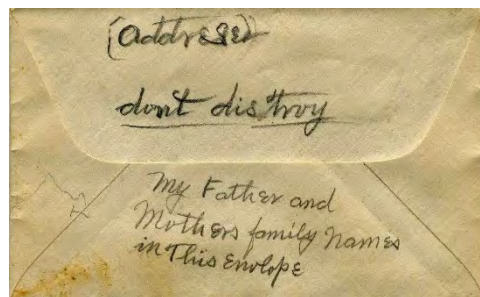 (Addresses)
don't distroy
My Father and
Mothers family Names
in This Envlope